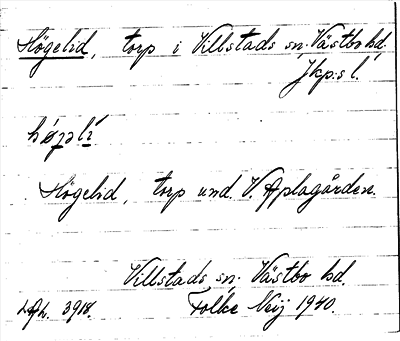 Högelid, torp i Villstads sn. Västbo hd.
Jkp:s l.
Högelid, torp und. V. Aplagården.
Villstads sn. Västbo hd.
3918. Folke Neij 1940.